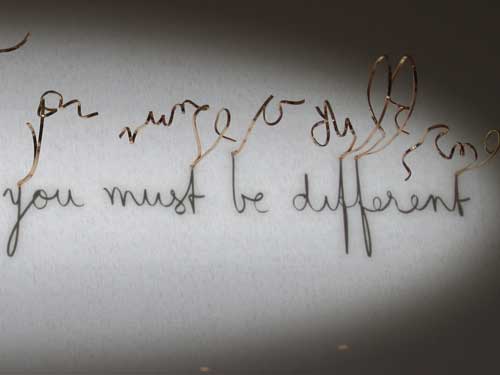 you must be different